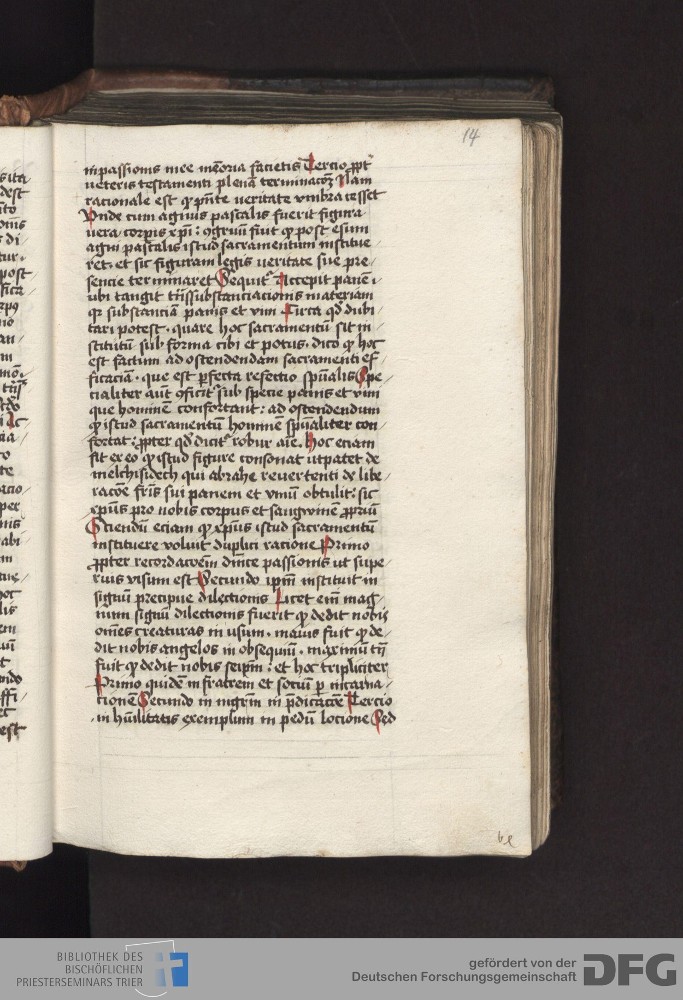 14
in passionis mee mēoria facietis Tercio ꝓpt̄
veteris testamenti plenā terminacōꝫ Nam
racionale est ꝙ p̄nte veritate vmbra cesset
Vnde cum agnus pascalis fuerit figura
vera corpis xp̄i : ꝯgruū fiut ꝙ post esum
agni pascalis istud sacramentum institue
ret · et sic figuram legis veritate sue pre
sencie terminaret Sequit᷑ Accepit panē ·
ubi tangit tn̄ssubstanciacionis materiam
qꝛ substanciā panis et vini Circa qd̄ dubi
tari potest · quare hoc sacramentū sit in
stitutū sub forma cibi et potus · dico ꝙ hoc
est factum ad ostendendam sacramenti ef
ficaciā · que est ꝑfecta refectio spūalis Spe
cialiter aūt ꝯficit᷑ sub specie panis et vini
que hominē confortant : ad ostendendum
ꝙ istud sacramentū hominē spūaliter con
fortat : ꝓpter qd̄ dicit᷑ robur aīe · hoc eciam
fit ex eo ꝙ istud figure consonat ut patet de
melchisidech qui abrahe reuertenti de libe
racōe fr̄is sui panem et vinū obtulit : sic
xp̄us pro nobis corpus et sangwinē ꝓpriū
Sciendū eciam ꝙ xp̄us istud sacramentū
instituere voluit duplici racione Primo
ꝓpter recordacōem dn̄ice passionis ut supe
rius visum est Secundo ip̄m instituit in
signū precipue dilectionis Licet em̄ mag
num signū dilectionis fuerit ꝙ dedit nobis
om̄es creaturas in usum · maius fuit ꝙ de
dit nobis angelos in obsequiū · maximū tn̄
fuit ꝙ dedit nobis seip̄m : et hoc tripliciter
Primo quidē in fratrem et sociū ꝑ incarna
cionē Secundo in mgr̄m in p̄dicacōe Tercio
in hūilitatis exemplum in pedū locione Sed
BIBLIOTHEK DES
BISCHÖFLICHEN
PRIESTERSEMINARS TRIER
gefördert von der
Deutschen Forschungsgemeinschaft
DFG